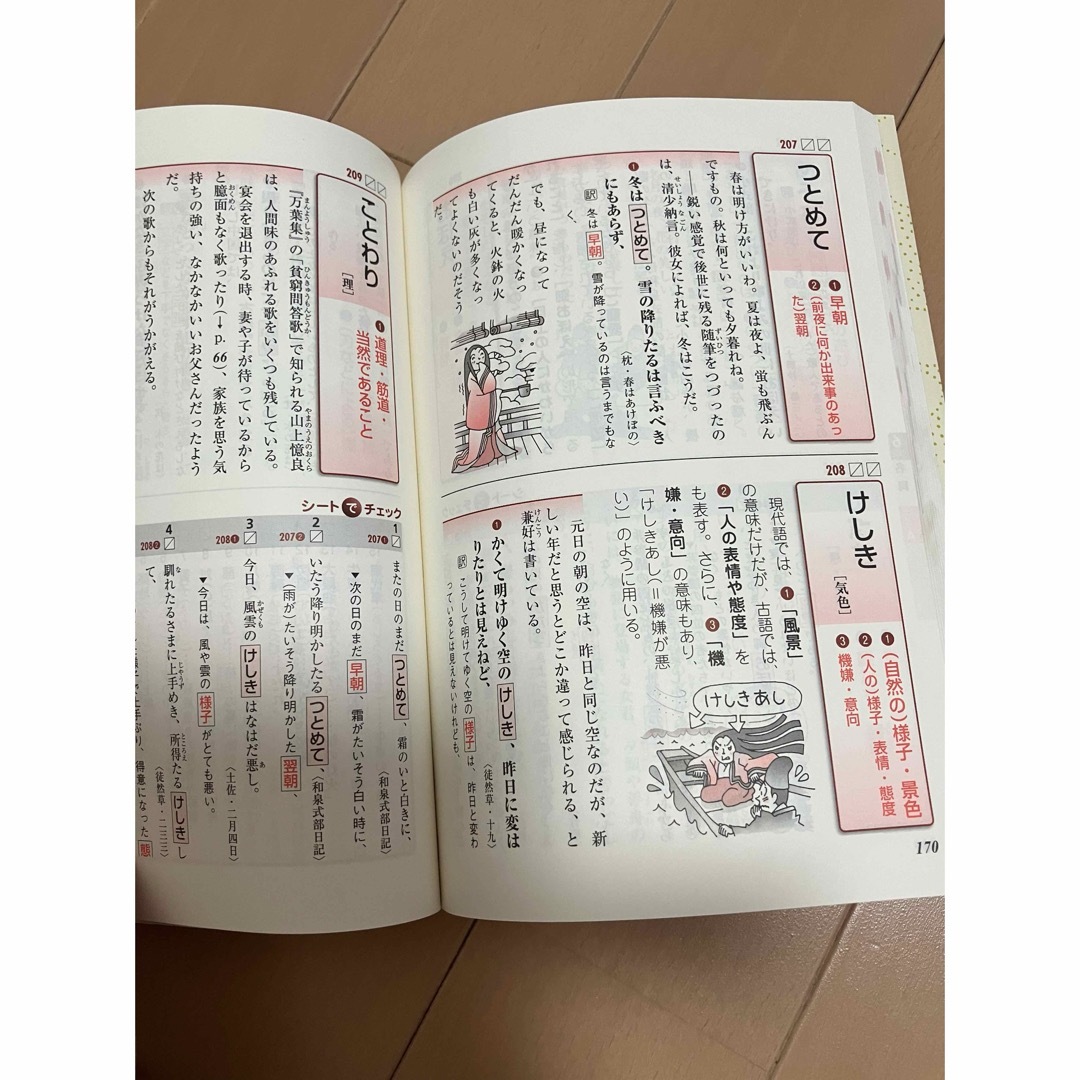 207
つとめて
❶ 早朝
❷ (前夜に何か出来事のあっ
た)翌朝
春は明け方がいいわ。夏は夜よ、蛍も飛ぶん
ですもの。秋は何といっても夕暮れね。
――鋭い感覚で後世に残る随筆をつづったの
は、清少納言。彼女によれば、冬はこうだ。
❶ 冬はつとめて。雪の降りたるは言ふべき
にもあらず、
(枕・春はあけぼの)
訳 冬は早朝。雪が降っているのは言うまでもな
く、
でも、昼になって
だんだん暖かくなっ
てくると、火鉢の火
も白い灰が多くなっ
てよくないのだそう
だ。
208
けしき
[気色]
❶ (自然の)様子・景色
❷ (人の)様子・表情・態度
❸ 機嫌・意向
現代語では、❶「風景」
の意味だけだが、古語では、
❷「人の表情や態度」を
も表す。さらに、❸「機
嫌・意向」の意味もあり、
「けしきあし(=機嫌が悪
い)」のように用いる。
けしきあし
元日の朝の空は、昨日と同じ空なのだが、新
しい年だと思うとどこか違って感じられる、と
兼好は書いている。
❶ かくて明けゆく空のけしき、昨日に変は
りたりとは見えねど、
(徒然草・十九)
訳 こうして明けてゆく空の様子は、昨日と変わ
っているとは見えないけれども、
170
209
ことわり
[理]
❶ 道理・筋道・
当然であること
『万葉集』の「貧窮問答歌」で知られる山上憶良
は、人間味のあふれる歌をいくつも残している。
宴会を退出する時、妻や子が待っているから
と臆面もなく歌ったり(→p.66)、家族を思う気
持ちの強い、なかなかいいお父さんだったよう
だ。
次の歌からもそれがうかがえる。
シートでチェック
1 207❶
またの日のまだつとめて、霜のいと白きに、
(和泉式部日記)
▼次の日のまだ早朝、霜がたいそう白い時に、
2 207❷
いたう降り明かしたるつとめて、(和泉式部日記)
▼(雨が)たいそう降り明かした翌朝、
3 208❶
今日、風雲のけしきはなはだ悪し。
(土佐・二月四日)
▼今日は、風や雲の様子がとても悪い。
4 208❷
馴れたるさまに上手めき、所得たるけしきし
て、
(徒然草・二三三)